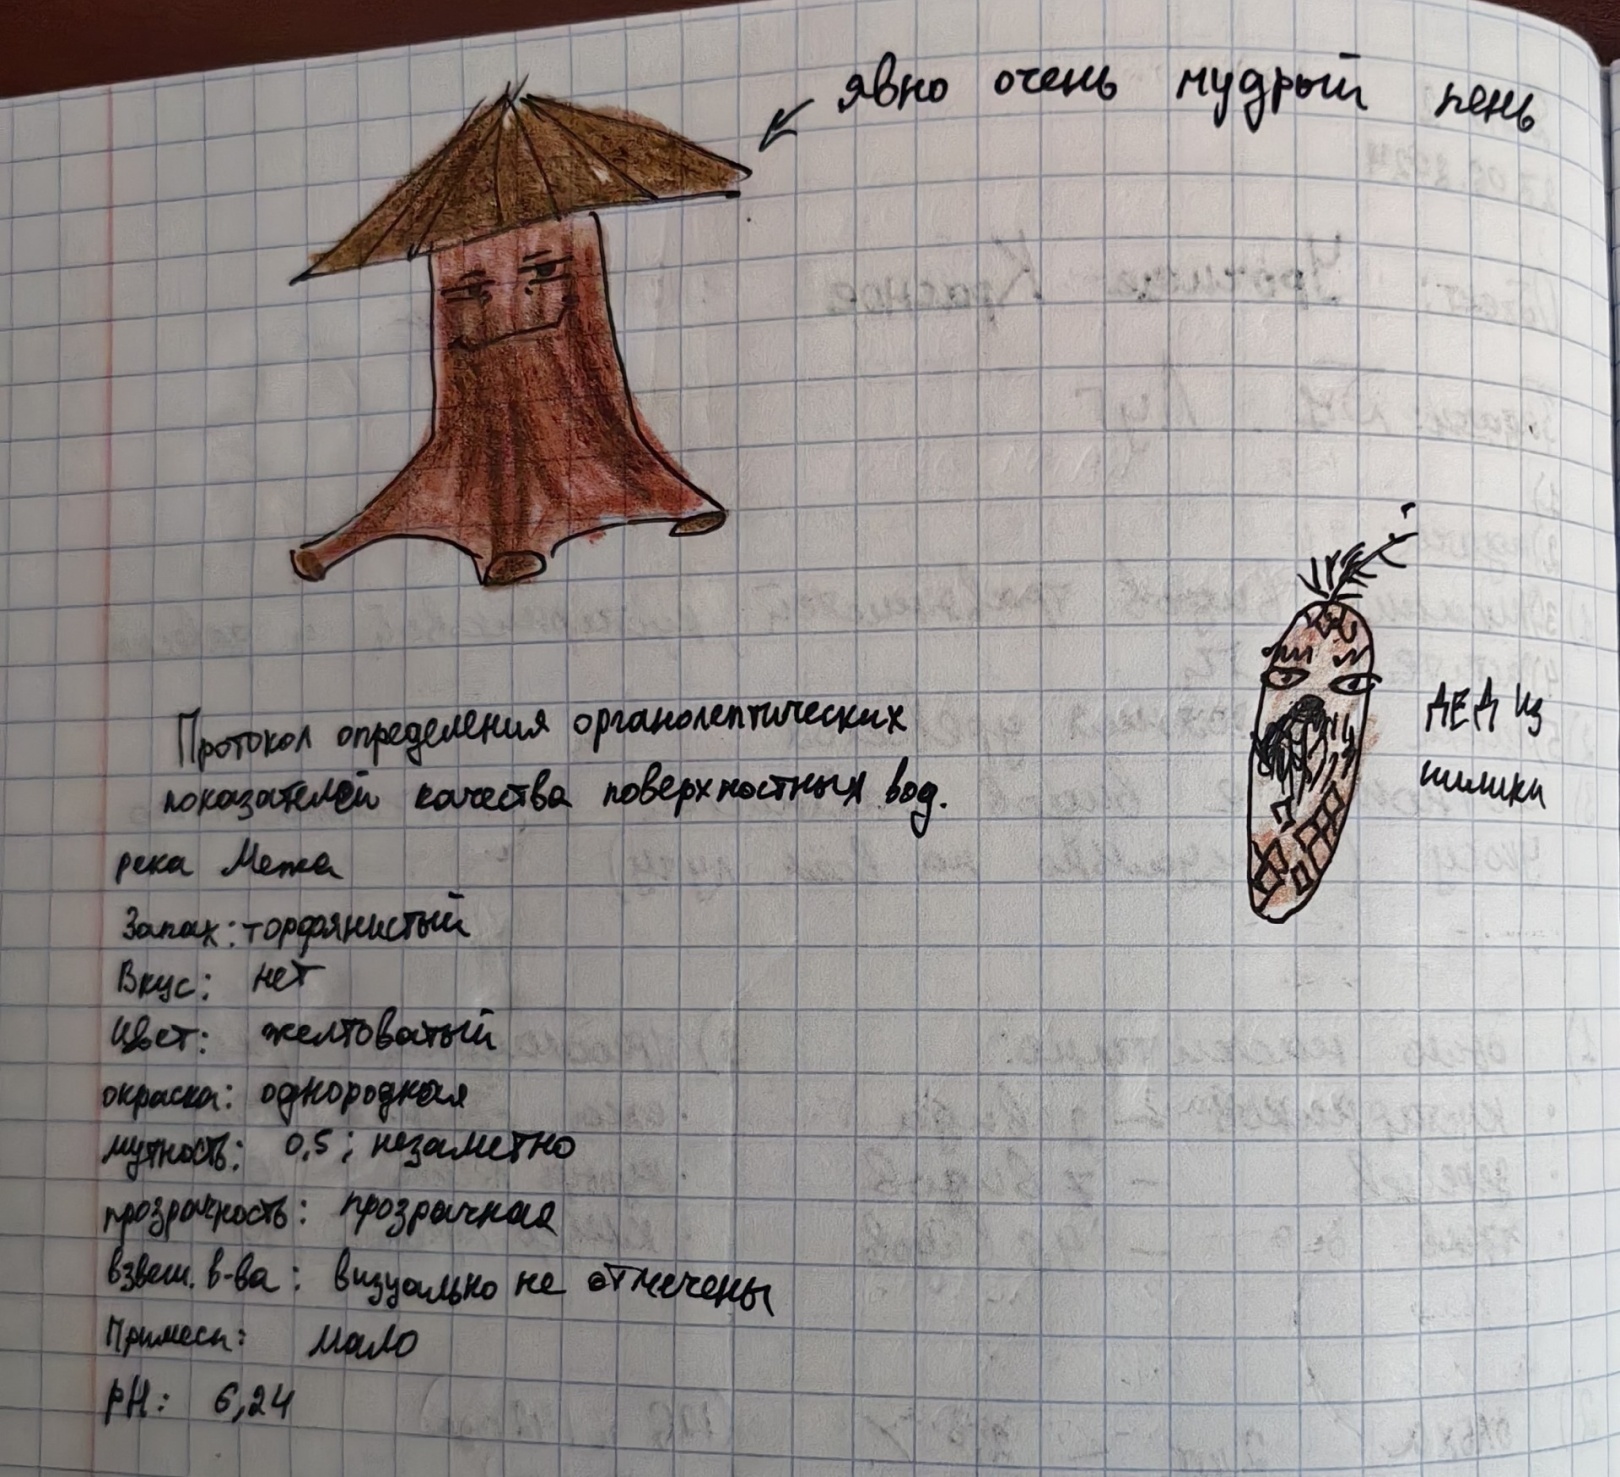 явно очень мудрый пень
ДЕД из
шишки
Протокол определения органолептических
показателей качества поверхностных вод.
река Метка
Запах: торфянистый
Вкус: нет
Цвет: желтоватый
окраска: однородная
мутность: 0,5; незаметно
прозрачность: прозрачная
взвеш. в-ва: визуально не отмечены
Примеси: мало
pH: 6,24